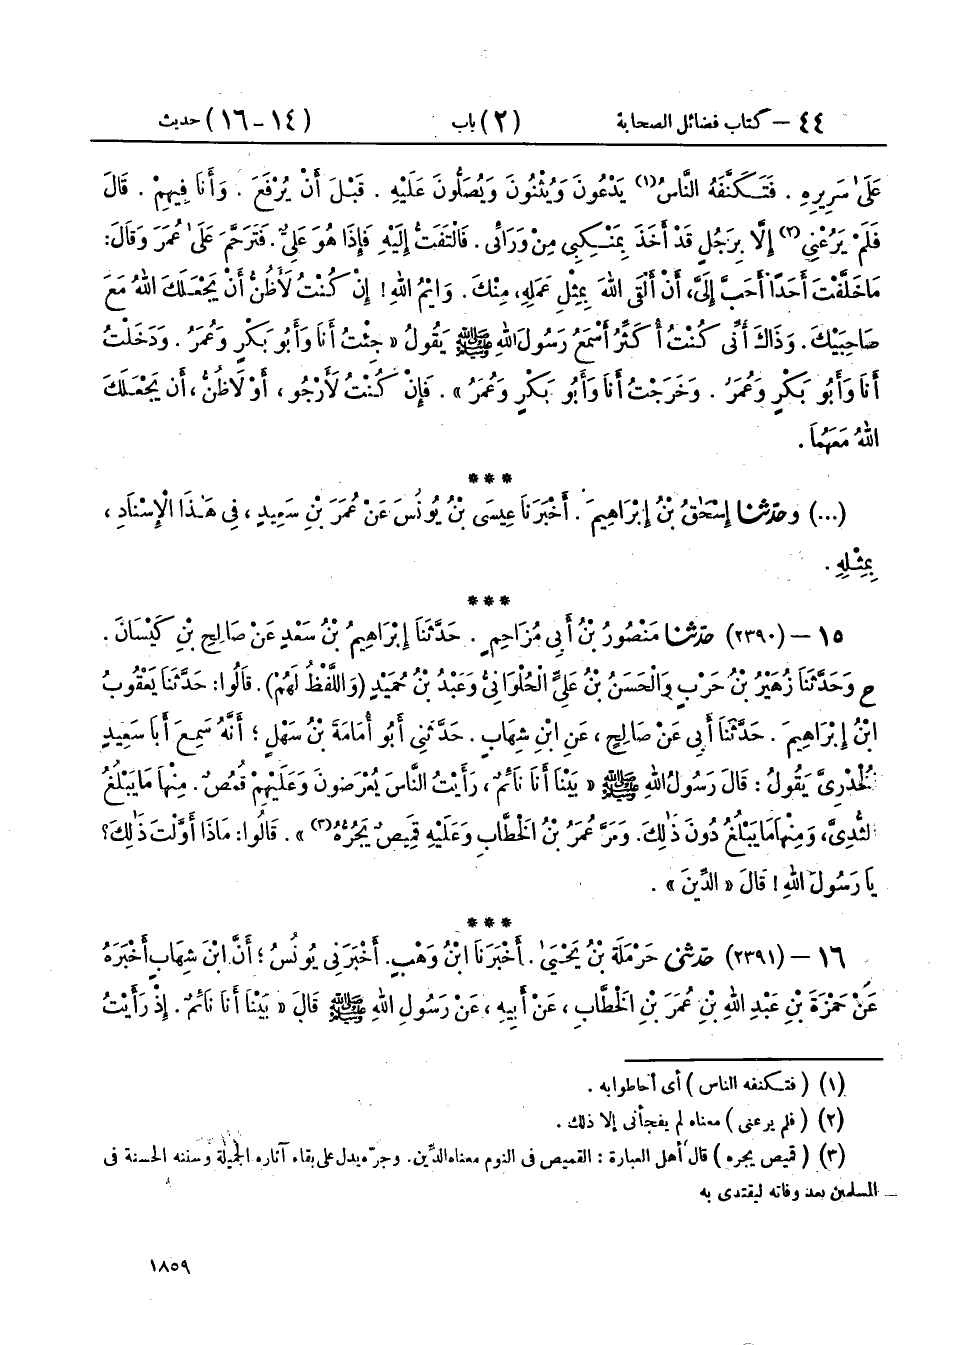 ٤٤ – كتاب فضائل الصحابة (٢) باب (١٤-١٦) حديث
عَلَىٰ سَرِيرِهِ . فَتَكَنَّفَهُ النَّاسُ(١) يَدْعُونَ وَيُثْنُونَ وَيُصَلُّونَ عَلَيْهِ . قَبْلَ أَنْ يُرْفَعَ . وَأَنَا فِيهِمْ . قَالَ
فَلَمْ يَرُعْنِي(٢) إِلَّا بِرَجُلٍ قَدْ أَخَذَ بِمَنْكِبِي مِنْ وَرَائِي . فَالْتَفَتُّ إِلَيْهِ فَإِذَا هُوَ عَلِيٌّ . فَتَرَحَّمَ عَلَىٰ عُمَرَ وَقَالَ :
مَا خَلَّفْتَ أَحَدًا أَحَبَّ إِلَيَّ ، أَنْ أَلْقَى اللهَ بِمِثْلِ عَمَلِهِ ، مِنْكَ . وَايْمُ اللهِ ! إِنْ كُنْتُ لَأَظُنُّ أَنْ يَجْعَلَكَ اللهُ مَعَ
صَاحِبَيْكَ . وَذَاكَ أَنِّي كُنْتُ أُكَثِّرُ أَسْمَعُ رَسُولَ اللهِ ﷺ يَقُولُ « جِئْتُ أَنَا وَأَبُو بَكْرٍ وَعُمَرُ . وَدَخَلْتُ
أَنَا وَأَبُو بَكْرٍ وَعُمَرُ . وَخَرَجْتُ أَنَا وَأَبُو بَكْرٍ وَعُمَرُ » . فَإِنْ كُنْتُ لَأَرْجُو ، أَوْ لَأَظُنُّ ، أَنْ يَجْعَلَكَ
اللهُ مَعَهُمَا .
***
(...) وحَدَّثَنَا إِسْحَٰقُ بْنُ إِبْرَاهِيمَ . أَخْبَرَنَا عِيسَى بْنُ يُونُسَ عَنْ عُمَرَ بْنِ سَعِيدٍ ، فِي هَٰذَا الْإِسْنَادِ ،
بِمِثْلِهِ .
***
١٥ – (٢٣٩٠) حَدَّثَنَا مَنْصُورُ بْنُ أَبِي مُزَاحِمٍ . حَدَّثَنَا إِبْرَاهِيمُ بْنُ سَعْدٍ عَنْ صَالِحِ بْنِ كَيْسَانَ .
ح وَحَدَّثَنَا زُهَيْرُ بْنُ حَرْبٍ وَالْحَسَنُ بْنُ عَلِيٍّ الْحُلْوَانِيُّ وَعَبْدُ بْنُ حُمَيْدٍ (وَاللَّفْظُ لَهُمْ) . قَالُوا : حَدَّثَنَا يَعْقُوبُ
ابْنُ إِبْرَاهِيمَ . حَدَّثَنَا أَبِي عَنْ صَالِحٍ ، عَنِ ابْنِ شِهَابٍ . حَدَّثَنِي أَبُو أُمَامَةَ بْنُ سَهْلٍ ؛ أَنَّهُ سَمِعَ أَبَا سَعِيدٍ
الْخُدْرِيَّ يَقُولُ : قَالَ رَسُولُ اللهِ ﷺ « بَيْنَا أَنَا نَائِمٌ ، رَأَيْتُ النَّاسَ يُعْرَضُونَ وَعَلَيْهِمْ قُمُصٌ . مِنْهَا مَا يَبْلُغُ
الثُّدِيَّ ، وَمِنْهَا مَا يَبْلُغُ دُونَ ذَٰلِكَ . وَمَرَّ عُمَرُ بْنُ الْخَطَّابِ وَعَلَيْهِ قَمِيصٌ يَجُرُّهُ(٣) » . قَالُوا : مَاذَا أَوَّلْتَ ذَٰلِكَ ؟
يَا رَسُولَ اللهِ ! قَالَ « الدِّينَ » .
***
١٦ – (٢٣٩١) حَدَّثَنِي حَرْمَلَةُ بْنُ يَحْيَىٰ . أَخْبَرَنَا ابْنُ وَهْبٍ . أَخْبَرَنِي يُونُسُ ؛ أَنَّ ابْنَ شِهَابٍ أَخْبَرَهُ
عَنْ حَمْزَةَ بْنِ عَبْدِ اللهِ بْنِ عُمَرَ بْنِ الْخَطَّابِ ، عَنْ أَبِيهِ ، عَنْ رَسُولِ اللهِ ﷺ قَالَ « بَيْنَا أَنَا نَائِمٌ . إِذْ رَأَيْتُ
(١) ( فتكنفه الناس ) أى أحاطوا به .
(٢) ( فلم يرعنى ) معناه لم يفجأنى إلا ذلك .
(٣) ( قميص يجره ) قال أهل العبارة : القميص فى النوم معناه الدِّين . وجرّه يدل على بقاء آثاره الجميلة وسننه الحسنة فى
المسلمين بعد وفاته ليقتدى به
١٨٥٩